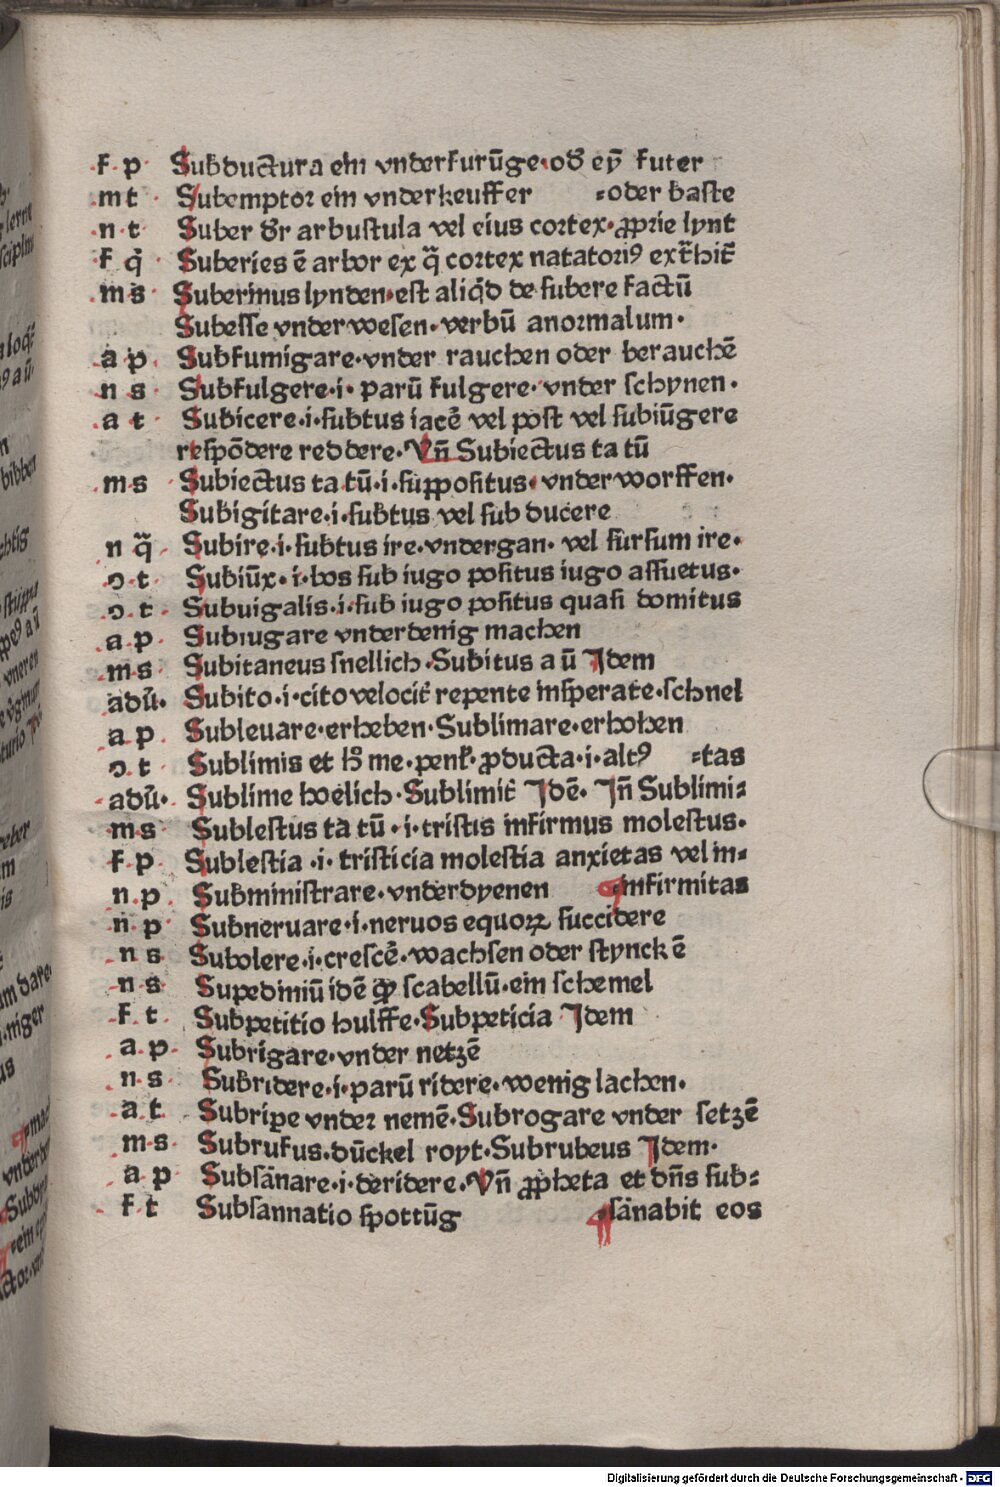 f p Subductura ein vnderfurūge·od̕ eȳ futer
m t Subemptor ein vnderkeuffer =oder baste
n t Suber d̕r arbustula vel eius cortex·ꝓprie lynt
f q̄ Suberies ē arbor ex q̄ cortex natatoriꝰ ext̄hit̄
m s Suberinus lynden·est aliq̇d de subere factū
Subesse vnder wesen·verbū anormalum·
a p Subfumigare·vnder rauchen oder berauchē
n s Subfulgere·i· parū fulgere·vnder schynen·
a t Subicere·i·subtus iacē vel post vel subiūgere
respōdere reddere·Vn̄ Subiectus ta tū
m s Subiectus ta tū·i·suppositus·vnder worffen·
Subigitare·i·subtus vel sub ducere
n q̄ Subire·i·subtus ire·vndergan· vel sursum ire·
ɔ t Subiūx·i·bos sub iugo positus iugo assuetus·
ɔ t Subuigalis·i·sub iugo positus quasi domitus
a p Subiugare vnderdenig machen
m s Subitaneus snellich·Subitus a ū Idem
adū· Subito·i·cito velocit̕ repente insperate·schnel
a p Subleuare·erheben·Sublimare·erhohen
ɔ t Sublimis et h̕ me·penl̕·ꝓducta·i·altꝰ =tas
adū· Sublime hoelich·Sublimit̕ Idē· In̄ Sublimi=
m s Sublestus ta tū·i·tristis infirmus molestus·
f p Sublestia·i·tristicia molestia anxietas vel in=
n p Subministrare·vnderdyenen ¶infirmitas
n p Subneruare·i·neruos equoꝝ succidere
n s Subolere·i·crescē·wachsen oder stynckē
n s Supediniū idē qḋ scabellū·ein schemel
f t Subpetitio hulffe·Subpeticia Idem
a p Subrigare·vnder netzē
n s Subridere·i·parū ridere·wenig lachen·
a t Subripe vnder nemē·Subrogare vnder setzē
m s Subrufus·dūckel royt·Subrubeus Idem·
a p Subsānare·i·deridere·Vn̄ ꝓpheta et dn̄s sub=
f t Subsannatio spottūg ¶sānabit eos
Digitalisierung gefördert durch die Deutsche Forschungsgemeinschaft - DFG